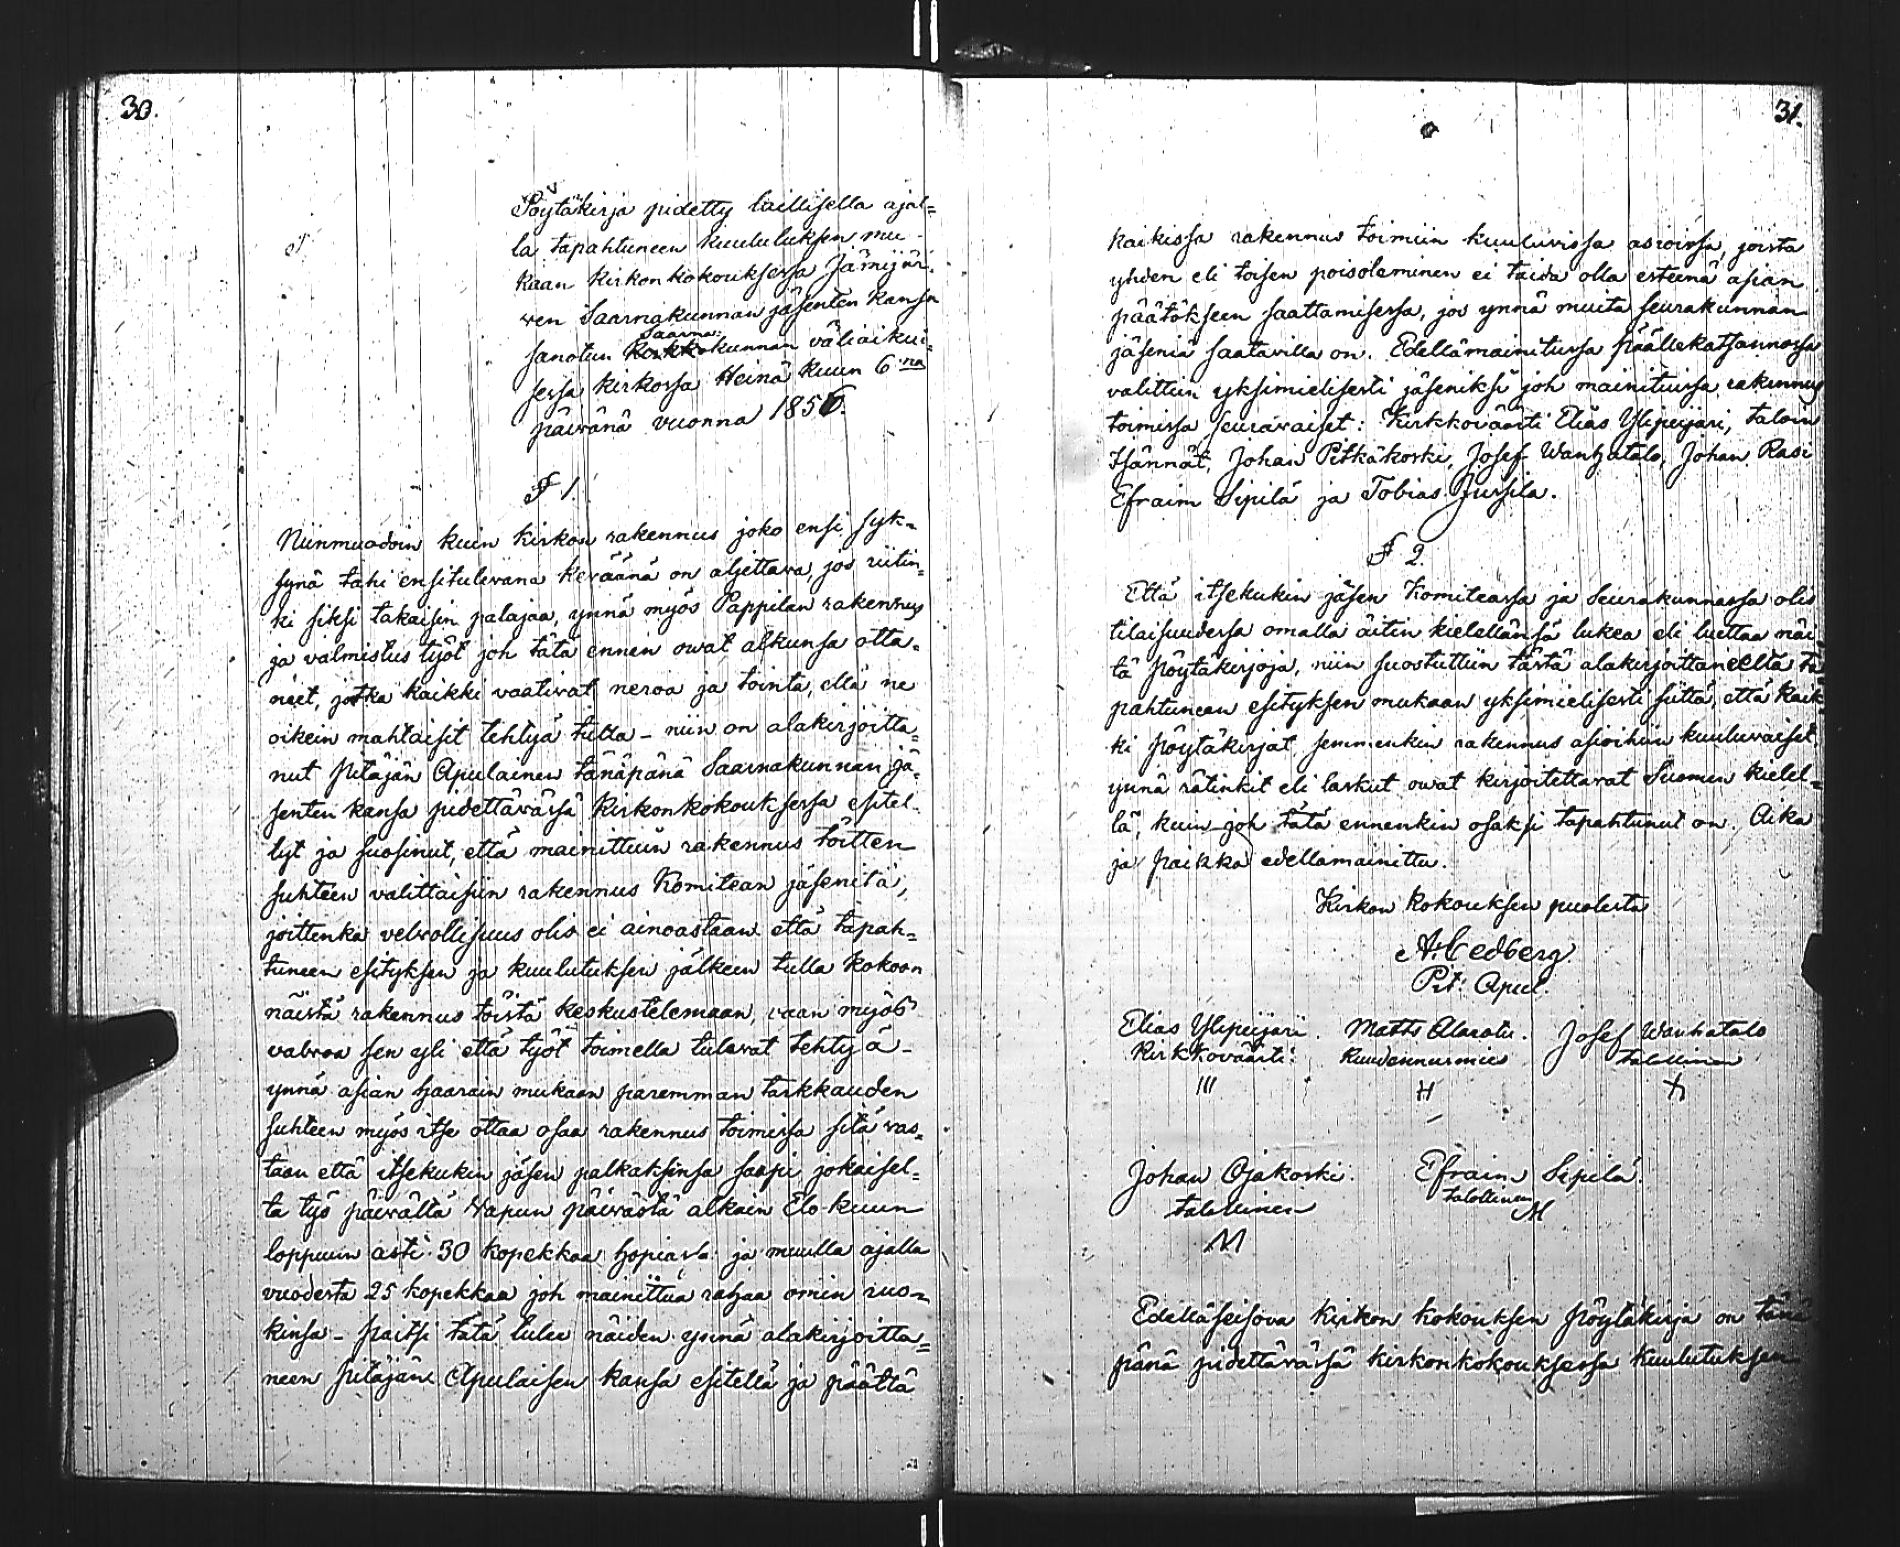 30.
Pöytäkirja pidetty laillisella ajal=
la tapahtuneen kuulutuksen mu-
kaan kirkon kokouksessa Jämijär-
ven Saarnakunnan jäsenten kansa
Saarna-
sanotun kunnan väliaikui-
sessa kirkossa Heinä kuun 6na
päivänä vuonna 1856.
§ 1
Niinmuodoin kuin kirkon rakennus joko ensi syk-
synä tahi ensitulevana keväänä on aljettava, jos riitin-
ki siksi takaisin palajaa, ynnä myös Pappilan rakennus
ja valmistus työt joh tätä ennen owat alkunsa otta-
neet, jotka kaikki vaativat neroa ja tointa, että ne
oikein mahtaisit tehtyä tulla - niin on alakirjoitta-
nut Pitäjän Apulainen tänäpänä Saarnakunnan jä-
senten kansa pidettävässä kirkonkokouksessa esitel-
lyt ja suosinut, että mainittuin rakennus töitten
suhteen valittaisiin rakennus Komitean jäsenitä,
joittenka velvollisuus olis ei ainoastaan että tapah=
tuneen esityksen ja kuulutuksen jälkeen tulla kokoon
näistä rakennus töistä keskustelemaan, vaan myös
valvoa sen yli että työt toimella tulevat tehtyä -
ynnä asian haarain mukaan paremman tarkkauden
suhteen myös itse ottaa osaa rakennus toimissa sitä vas-
taan että itsekukin jäsen palkaksensa saapi jokaisel-
ta työ päivältä Vapun päivästä alkain Elo-kuun
loppuun asti 30 kopekkaa hopiassa ja muulla ajalla
vuodesta 25 kopekkaa joh mainittua rahaa omin ruo-
kinsa - paitsi tätä tulee näiden ynnä alakirjoitta=
neen Pitäjäni Apulaisen kansa esitellä ja päättä
31.
kaikissa rakennus toimiin kuuluvissa asioissa, joista
yhden eli toisen poisoleminen ei taida olla esteenä asian
päätökseen saattamisessa, jos ynnä muita seurakunnan
jäseniä saatavilla on. Edellämainitussa päällekatsannossa
valittiin yksimielisesti jäseniksi joh mainituissa rakennus
toimissa seuravaiset: Kirkkoväärti Elias Ylipeijari, taloin
Isännät, Johan Pitkäkoski, Josef Wanhatalo, Johan Rasi
Efraim Sipilä ja Tobias Jussila.
§ 2.
Että itsekukin jäsen Komiteassa ja Seurakunnassa olis
tilaisuudessa omalla äitin kielellänsä lukea eli luettaa näi-
tä pöytäkirjoja, niin suostuttiin tästä alakirjoittaneelta ta-
pahtuneen esityksen mukaan yksimielisesti siittä, että kaik-
ki pöytäkirjat semmenkin rakennus asioihin kuuluvaiset
ynnä rätinkit eli laskut owat kirjoitettavat Suomen kielel=
lä, kuin joh tätä ennenkin osaksi tapahtunut on. Aika
ja paikka edellämainittu.
Kirkon kokouksen puolesta
A. Cedberg.
Pit: Apul.
Elias Ylipeijari Matts Alaratu. Josef Wanhatalo
Kirkkoväärti: Kuudennusmies talollinen
III H
Johan Ojakoski. Efraim Sipilä.
talollinen talollinen
M M
Edelläseisova kirkon kokouksen pöytäkirja on tänä
pänä pidettävässä kirkonkokouksessa kuulutuksen